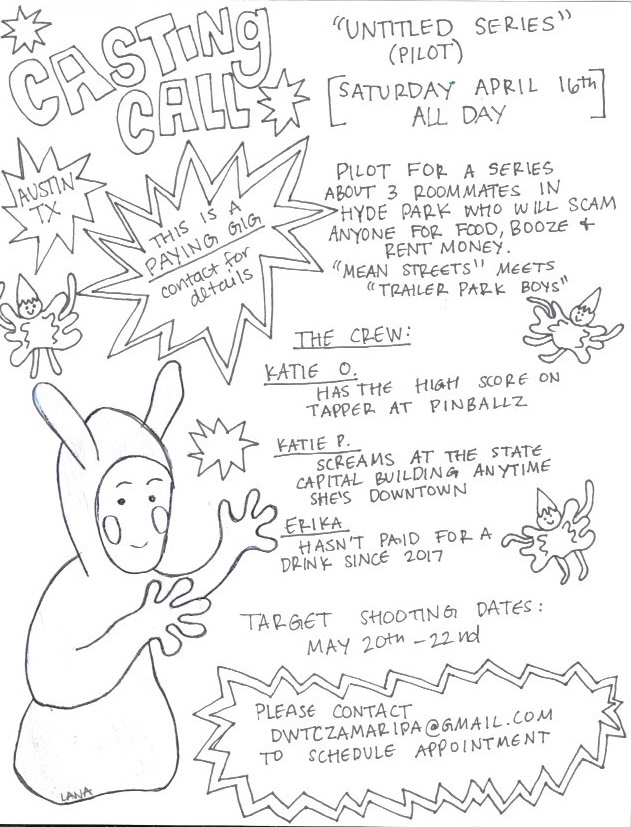 CASTING
CALL
"UNTITLED SERIES"
(PILOT)
[SATURDAY APRIL 16th
ALL DAY]
AUSTIN
TX
THIS IS A
PAYING GIG
contact for
details
PILOT FOR A SERIES
ABOUT 3 ROOMMATES IN
HYDE PARK WHO WILL SCAM
ANYONE FOR FOOD, BOOZE +
RENT MONEY.
"MEAN STREETS" MEETS
"TRAILER PARK BOYS"
THE CREW:
KATIE O.
HAS THE HIGH SCORE ON
TAPPER AT PINBALLZ
KATIE P.
SCREAMS AT THE STATE
CAPITAL BUILDING ANYTIME
SHE'S DOWNTOWN
ERIKA
HASN'T PAID FOR A
DRINK SINCE 2017
TARGET SHOOTING DATES:
MAY 20th - 22nd
PLEASE CONTACT
DWTCZAMARIPA@GMAIL.COM
TO SCHEDULE APPOINTMENT
LANA